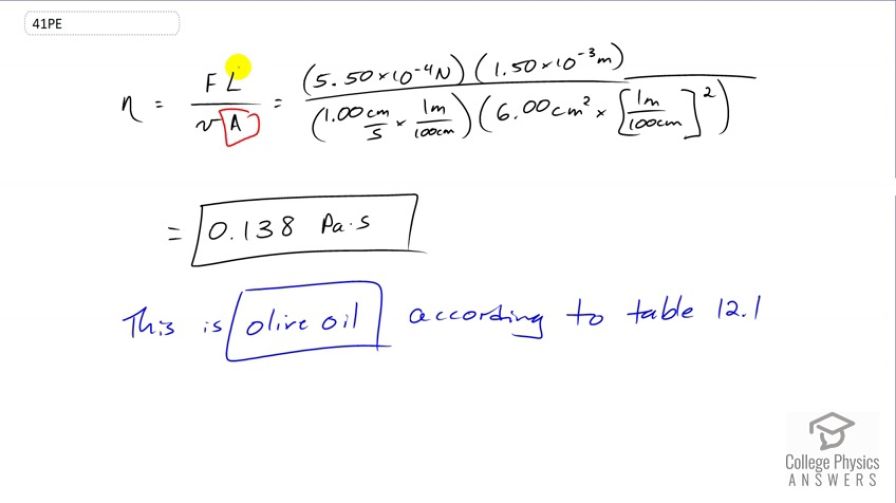 41PE
η = F L / v A = (5.50×10⁻⁴N)(1.50×10⁻³m) / (1.00 cm/s × 1m/100cm)(6.00cm² × [1m/100cm]²)
= 0.138 Pa·s
This is olive oil according to table 12.1
College Physics
ANSWERS